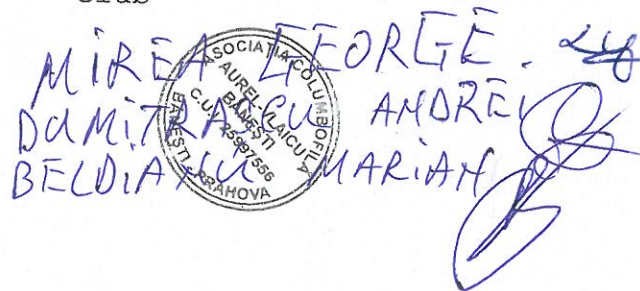 Club
MIREA GEORGE.
DUMITRAȘCU ANDREI
BELDIANU MARIAN
ASOCIAȚIA COLUMBOFILĂ
AUREL VLAICU
BĂNEȘTI
C.U.I. 25997556
BĂNEȘTI PRAHOVA